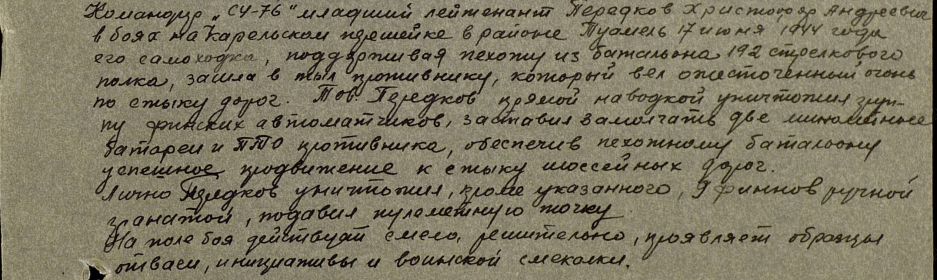 Командир „СУ-76" младший лейтенант Передков Христофор Андреевич
в боях на Карельском перешейке в районе Туамель 17 июня 1944 года
его самоходка, поддерживая пехоту из батальона 192 стрелкового
полка, зашла в тыл противнику, который вел ожесточенный огонь
по стыку дорог. Тов. Передков прямой наводкой уничтожил груп-
пу финских автоматчиков, заставил замолчать две минометные
батареи и ПТО противника, обеспечив пехотному батальону
успешное продвижение к стыку шоссейных дорог.
Лично Передков уничтожил, кроме указанного, 9 финнов ручной
гранатой, подавил пулеметную точку
На поле боя действует смело, решительно, проявляет образцы
отваги, инициативы и воинской смекалки.